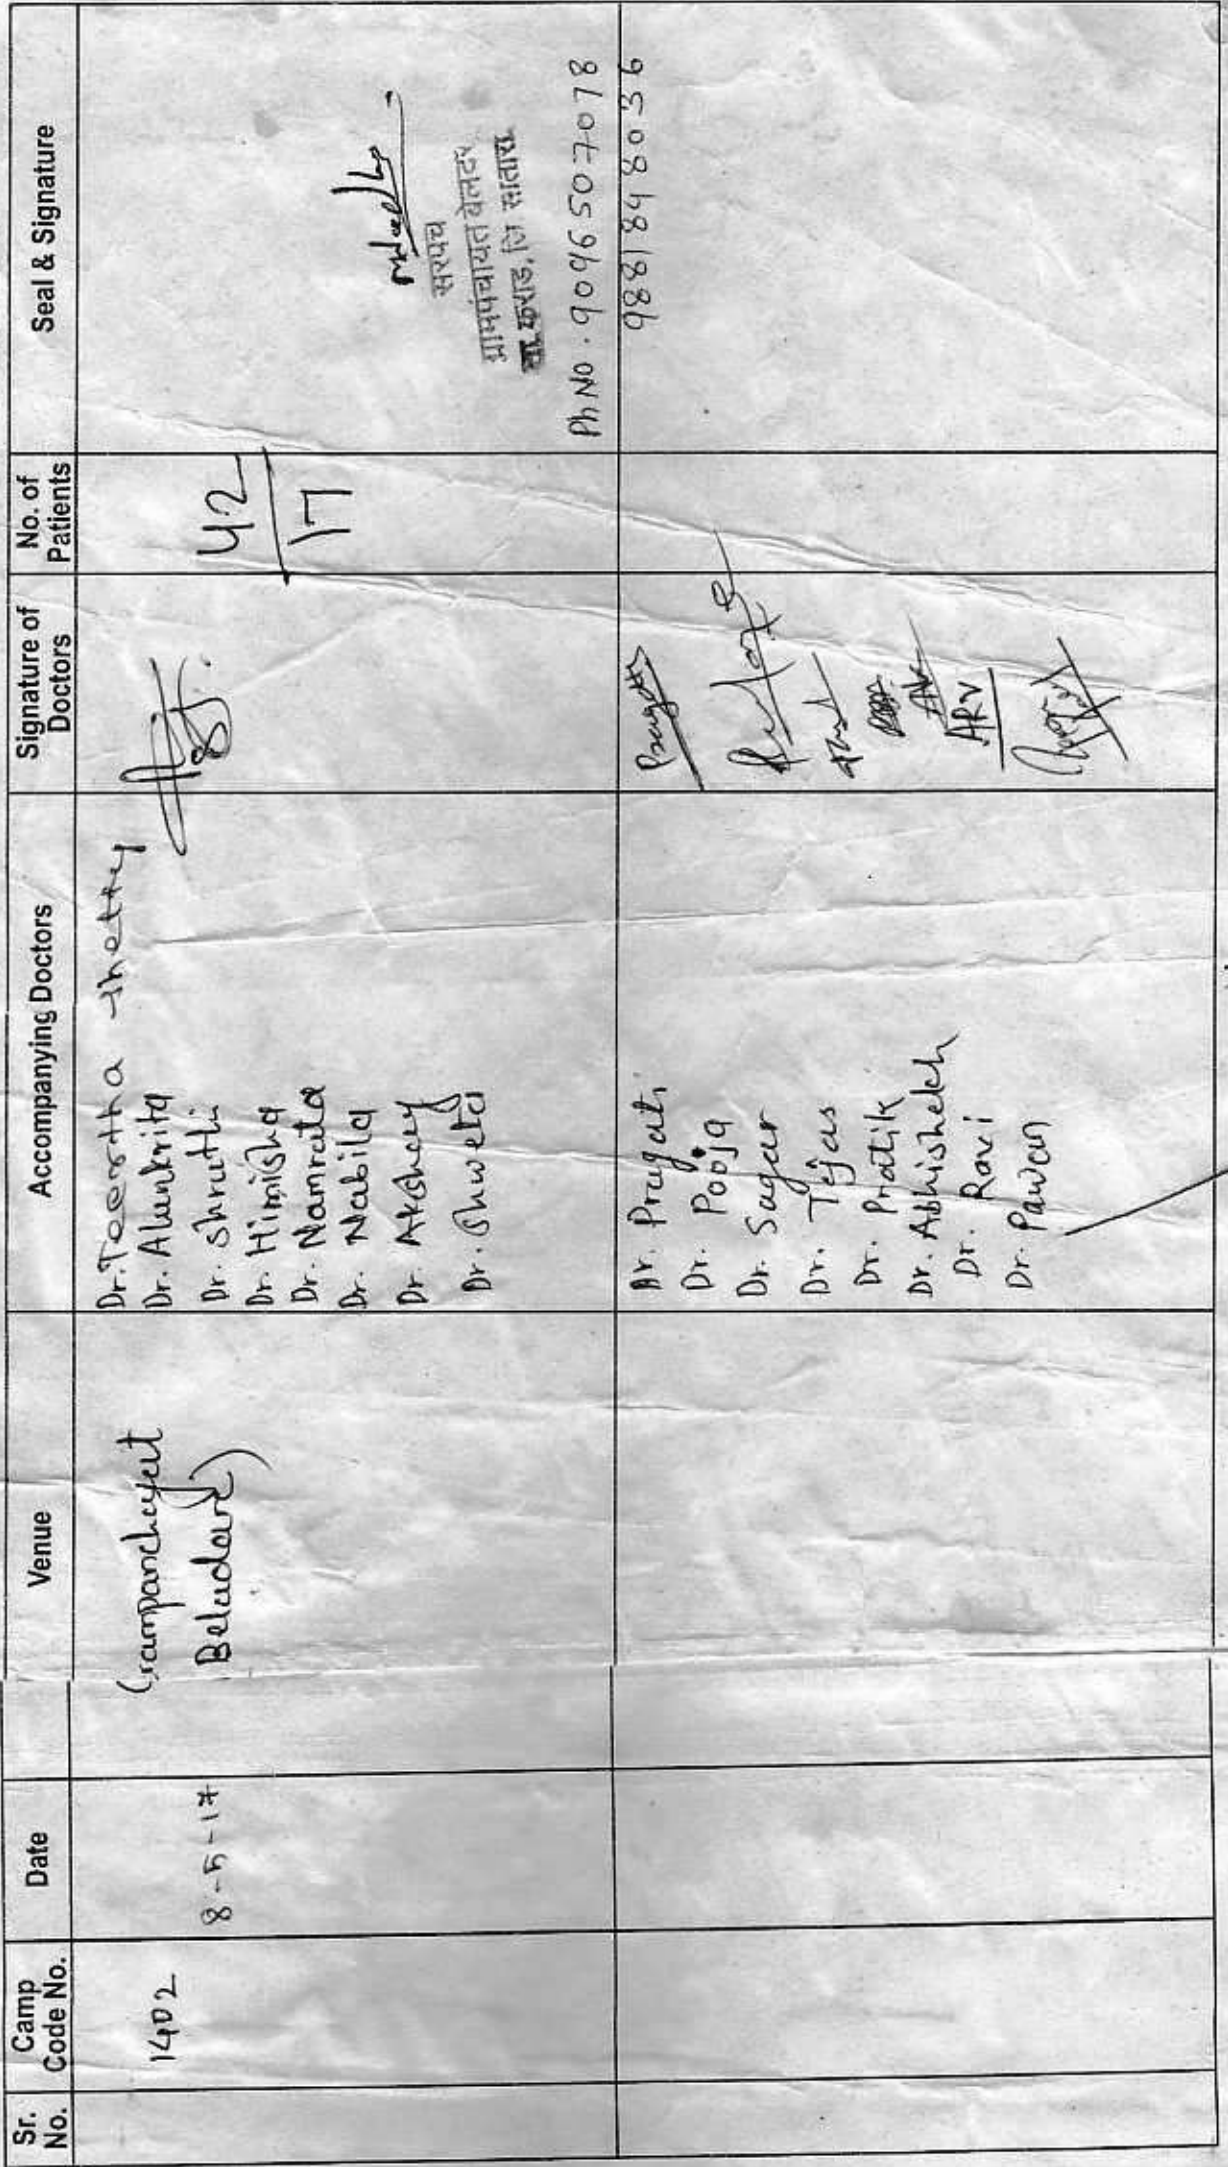 Sr. No.
Camp Code No.
Date
Venue
Accompanying Doctors
Signature of Doctors
No. of Patients
Seal & Signature
1402
8-5-17
Grampanchayat
Beladare)
Dr. Teertha shetty
Dr. Alunkrita
Dr. Shruthi
Dr. Himisha
Dr. Namrata
Dr. Nabila
Dr. Akshay
Dr. Shweta
42
17
सरपंच
ग्रामपंचायत बेलदरे
ता. कराड, जि. सातारा
Ph NO. 9096507078
Dr. Pragati
Dr. Pooja
Dr. Sagar
Dr. Tejas
Dr. Pratik
Dr. Abhishekh
Dr. Ravi
Dr. Pawan
Pragati
ARV
9881848036